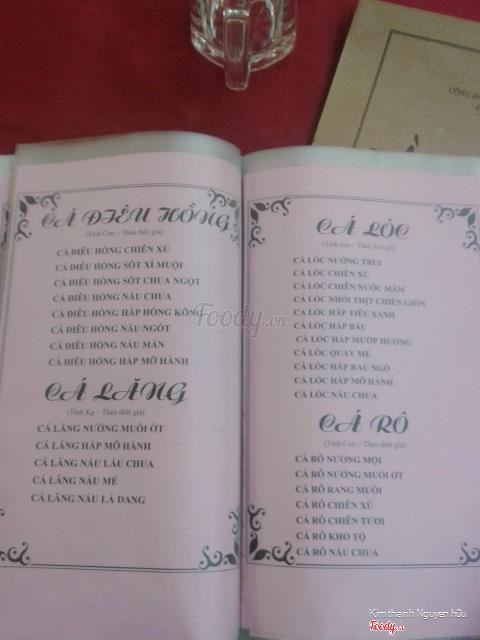 CÁ ĐIÊU HỒNG
(Tính Con – Theo thời giá)
CÁ ĐIÊU HỒNG CHIÊN XÙ
CÁ ĐIÊU HỒNG SỐT XÍ MUỘI
CÁ ĐIÊU HỒNG SỐT CHUA NGỌT
CÁ ĐIÊU HỒNG NẤU CHUA
CÁ ĐIÊU HỒNG HẤP HỒNG KÔNG
CÁ ĐIÊU HỒNG NẤU NGÓT
CÁ ĐIÊU HỒNG NẤU MẲN
CÁ ĐIÊU HỒNG HẤP MỠ HÀNH
CÁ LĂNG
(Tính Kg – Theo thời giá)
CÁ LĂNG NƯỚNG MUỐI ỚT
CÁ LĂNG HẤP MỠ HÀNH
CÁ LĂNG NẤU LẨU CHUA
CÁ LĂNG NẤU MẺ
CÁ LĂNG NẤU LÁ DANG
CÁ LÓC
(Tính con – Theo thời giá)
CÁ LÓC NƯỚNG TRUI
CÁ LÓC CHIÊN XÙ
CÁ LÓC CHIÊN NƯỚC MẮM
CÁ LÓC NHỒI THỊT CHIÊN GIÒN
CÁ LÓC HẤP TIÊU XANH
CÁ LÓC HẤP BẦU
CÁ LÓC HẤP MƯỚP HƯƠNG
CÁ LÓC QUAY ME
CÁ LÓC HẤP RAU NGÒ
CÁ LÓC HẤP MỠ HÀNH
CÁ LÓC NẤU CHUA
CÁ RÔ
(Tính Con – Theo thời giá)
CÁ RÔ NƯỚNG MỌI
CÁ RÔ NƯỚNG MUỐI ỚT
CÁ RÔ RANG MUỐI
CÁ RÔ CHIÊN XÙ
CÁ RÔ CHIÊN TƯƠI
CÁ RÔ KHO TỘ
CÁ RÔ NẤU CHUA
CỘNG
Foody.vn
Kimthanh Nguyen hữu
Foody.vn